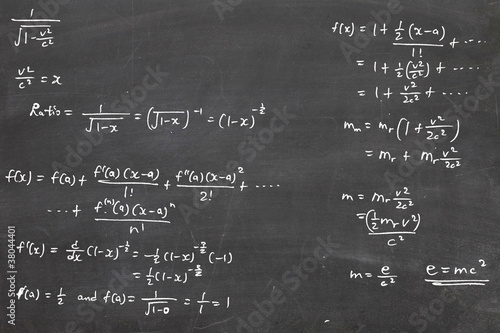 1
√1-v²/c²
v²/c² = x
Ratio = 1/√1-x = (√1-x)⁻¹ = (1-x)^-½
f(x) = f(a) + f'(a)(x-a)/1! + f''(a)(x-a)²/2! + ....
....+ f⁽ⁿ⁾(a)(x-a)ⁿ/n!
f'(x) = d/dx (1-x)^-½ = -½(1-x)^-3/2 (-1)
= ½(1-x)^-3/2
f'(a) = ½ and f(a) = 1/√1-0 = 1/1 = 1
f(x) = 1 + ½(x-a)/1! + ....
= 1 + ½(v²/c²) + ....
= 1 + v²/2c² + ....
mₘ = mᵣ(1 + v²/2c²)
= mᵣ + mᵣ v²/2c²
m = mᵣ v²/2c²
= (½mᵣv²)/c²
m = e/c² e = mc²
38044401